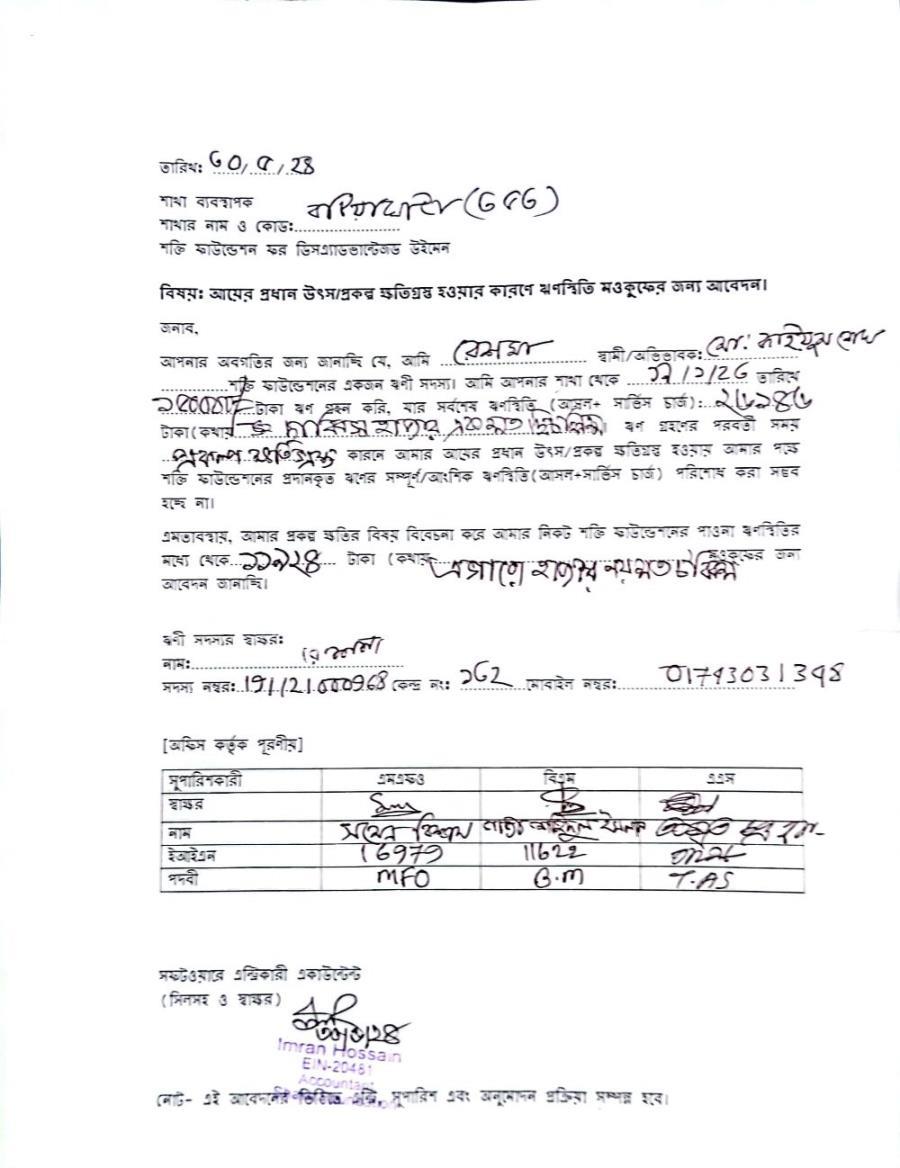 তারিখঃ ৩০/৫/২৪
শাখা ব্যবস্থাপক
শাখার নাম ও কোডঃ
শক্তি ফাউন্ডেশন ফর ডিসএ্যাডভান্টেজড উইমেন
বিষয়ঃ আয়ের প্রধান উৎস/প্রকল্প ক্ষতিগ্রস্ত হওয়ার কারণে ঋণস্থিতি মওকুফের জন্য আবেদন।
জনাব,
আপনার অবগতির জন্য জানাচ্ছি যে, আমি স্বামী/অভিভাবকঃ মোঃ
শক্তি ফাউন্ডেশনের একজন ঋণী সদস্য। আমি আপনার শাখা থেকে তারিখে
টাকা ঋণ গ্রহন করি, যার সর্বশেষ ঋণস্থিতি (আসল+ সার্ভিস চার্জ):
টাকা(কথায় ঋণ গ্রহণের পরবর্তী সময়
প্রকল্প ক্ষতিগ্রস্থ কারনে আমার আয়ের প্রধান উৎস/প্রকল্প ক্ষতিগ্রস্ত হওয়ায় আমার পক্ষে
শক্তি ফাউন্ডেশনের প্রদানকৃত ঋণের সম্পূর্ণ/আংশিক ঋণস্থিতি(আসল+সার্ভিস চার্জ) পরিশোধ করা সম্ভব
হচ্ছে না।
এমতাবস্থায়, আমার প্রকল্প ক্ষতির বিষয় বিবেচনা করে আমার নিকট শক্তি ফাউন্ডেশনের পাওনা ঋণস্থিতির
মধ্যে থেকে ১১৯২৪ টাকা (কথায় এগারো হাজার নয়শত চব্বিশ মওকুফের জন্য
আবেদন জানাচ্ছি।
ঋণী সদস্যর স্বাক্ষরঃ
নামঃ
সদস্য নম্বরঃ 191/21/000968 কেন্দ্র নংঃ ১৬২ মোবাইল নম্বরঃ 01743031348
[অফিস কর্তৃক পূরণীয়]
সুপারিশকারী এমএফও বিএম এএস
স্বাক্ষর
নাম
ইআইএন 16979 11622
পদবী MFO B.M T.AS
সফটওয়ারে এন্ট্রিকারী একাউন্টেন্ট
(সিলসহ ও স্বাক্ষর)
Imran Hossain
EIN-20481
Accountant
নোট- এই আবেদনের ভিত্তিতে এন্ট্রি, সুপারিশ এবং অনুমোদন প্রক্রিয়া সম্পন্ন হবে।